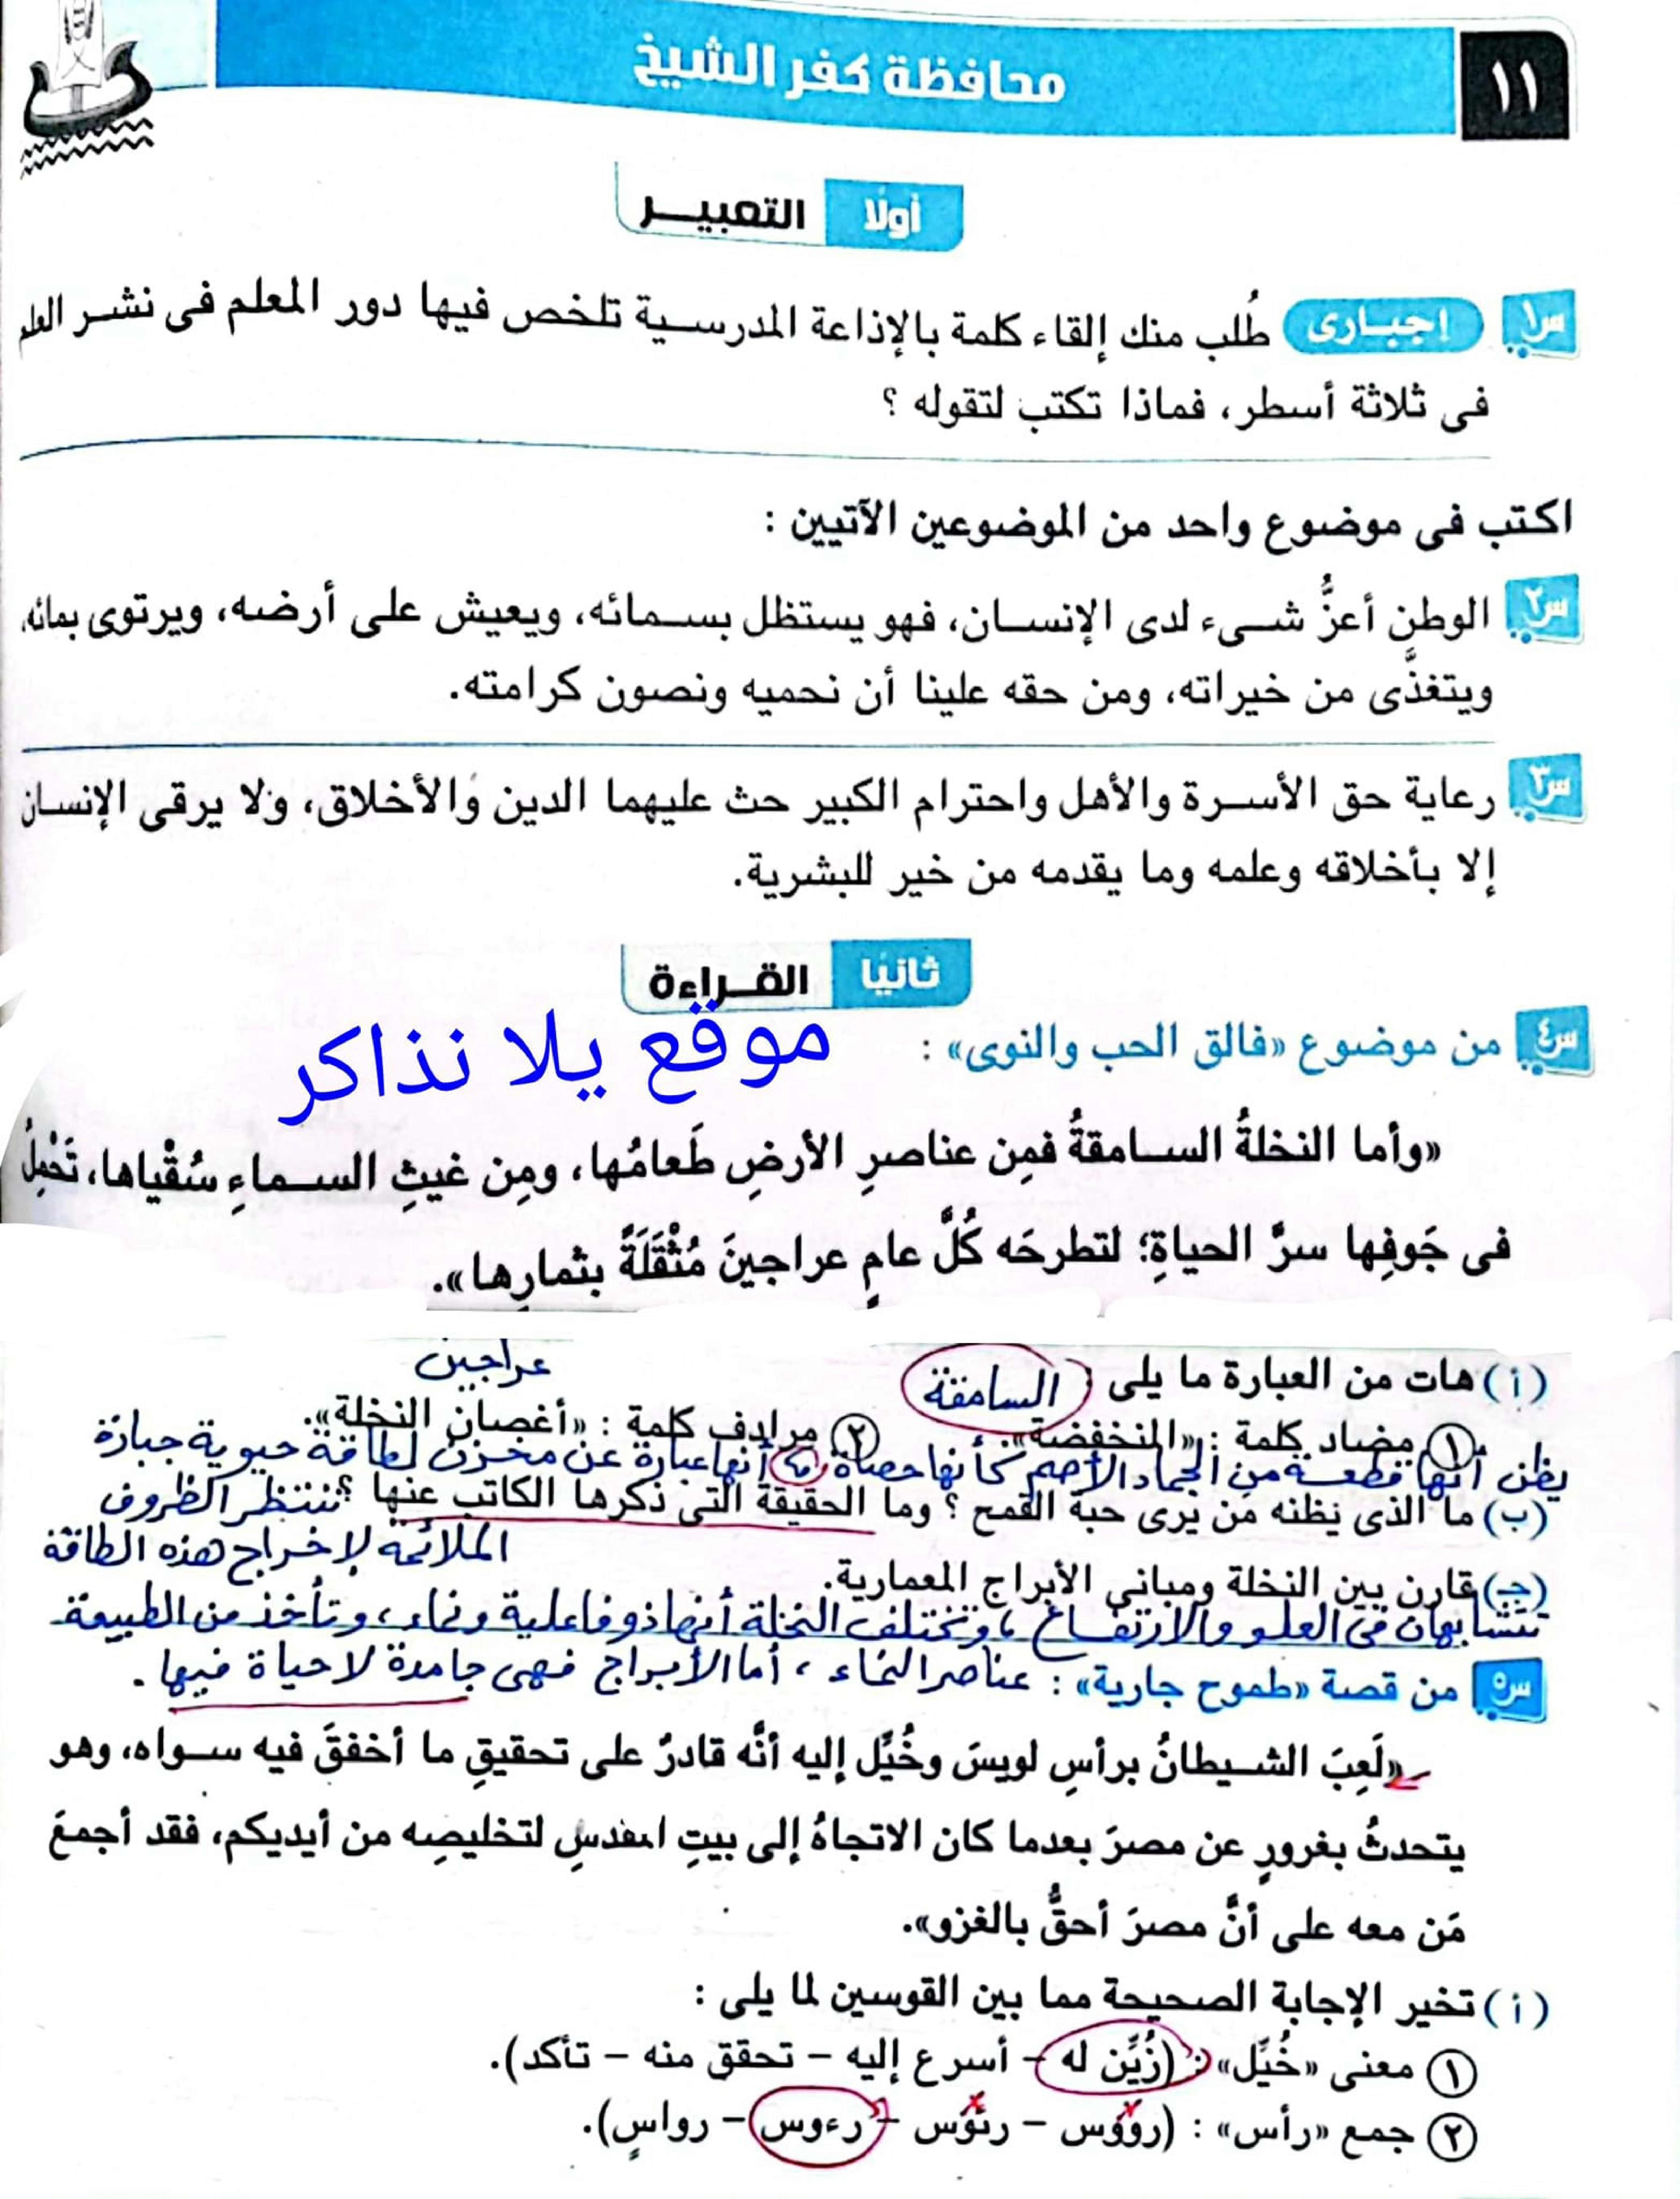 ١١
محافظة كفر الشيخ
أولًا التعبير
س١ إجبارى طُلب منك إلقاء كلمة بالإذاعة المدرسية تلخص فيها دور المعلم فى نشر العلم
فى ثلاثة أسطر، فماذا تكتب لتقوله ؟
اكتب فى موضوع واحد من الموضوعين الآتيين :
س٢ الوطن أعزُّ شىء لدى الإنسان، فهو يستظل بسمائه، ويعيش على أرضه، ويرتوى بمائه،
ويتغذَّى من خيراته، ومن حقه علينا أن نحميه ونصون كرامته.
س٣ رعاية حق الأسرة والأهل واحترام الكبير حث عليهما الدين والأخلاق، ولا يرقى الإنسان
إلا بأخلاقه وعلمه وما يقدمه من خير للبشرية.
ثانيًا القراءة
موقع يلا نذاكر
س٤ من موضوع «فالق الحب والنوى» :
«وأما النخلةُ السامقةُ فمِن عناصرِ الأرضِ طَعامُها، ومِن غيثِ السماءِ سُقْياها، تَحْمِلُ
فى جَوفِها سرَّ الحياةِ؛ لتطرحَه كُلَّ عامٍ عراجينَ مُثْقَلَةً بثمارِها».
عراجين
(أ) هات من العبارة ما يلى : السامقة
١ مضاد كلمة : «المنخفضة». ٢ مرادف كلمة : «أغصان النخلة».
يظن أنها قطعة من الجماد الأصم كأنها حصاة أنها عبارة عن مخزن لطاقة حيوية جبارة
(ب) ما الذى يظنه من يرى حبة القمح ؟ وما الحقيقة التى ذكرها الكاتب عنها ؟ تنتظر الظروف
الملائمة لإخراج هذه الطاقة
(جـ) قارن بين النخلة ومبانى الأبراج المعمارية.
تتشابهان فى العلو والارتفاع ، وتختلف النخلة أنها ذو فاعلية ونماء ، وتأخذ من الطبيعة
س٥ من قصة «طموح جارية» : عناصر النماء ، أما الأبراج فهى جامدة لا حياة فيها .
«لَعِبَ الشيطانُ برأسِ لويسَ وخُيِّل إليه أنَّه قادرٌ على تحقيقِ ما أخفقَ فيه سواه، وهو
يتحدثُ بغرورٍ عن مصرَ بعدما كان الاتجاهُ إلى بيتِ المقدسِ لتخليصِه من أيديكم، فقد أجمعَ
مَن معه على أنَّ مصرَ أحقُّ بالغزو».
(أ) تخير الإجابة الصحيحة مما بين القوسين لما يلى :
١ معنى «خُيِّل» : (زُيِّن له – أسرع إليه – تحقق منه – تأكد).
٢ جمع «رأس» : (رؤوس – رئوس – رءوس – رواسٍ).